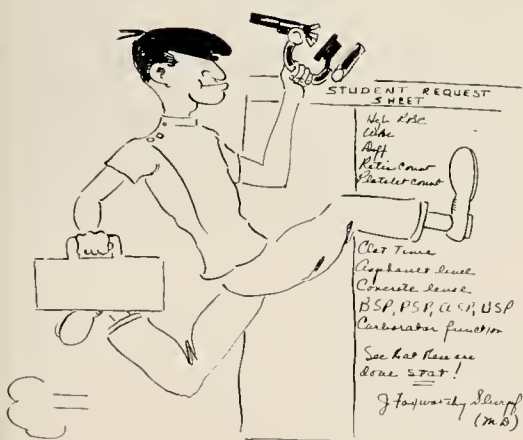 STUDENT REQUEST
SHEET
Hgb RBC
WBC
Diff.
Retic Count
Platelet Count
Clot Time
Asphault level
Concrete level
BSP, PSP, ASP, USP
Carborator function
See that these are
done STAT!
J Foxworthy Slurpf
(MD)